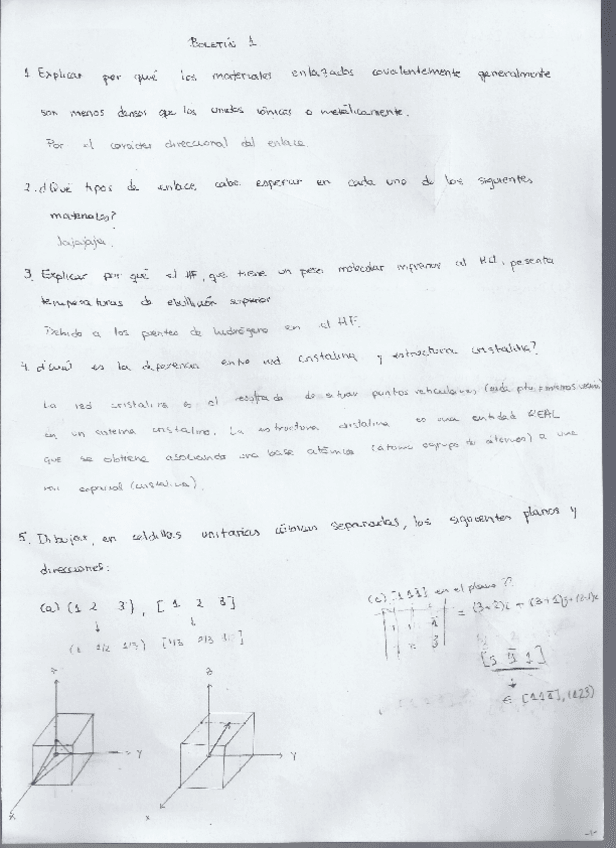 BOLETÍN 1
1 Explicar por qué los materiales enlazados covalentemente generalmente
son menos densos que los unidos iónicos o metálicamente.
Por el carácter direccional del enlace
2. ¿Qué tipos de enlace cabe esperar en cada uno de los siguientes
materiales?
Jajajaja.
3. Explicar por qué el HF, que tiene un peso molecular inferior al HCl, presenta
temperaturas de ebullición superior
Debido a los puentes de hidrógeno en el HF.
4. ¿Cuál es la diferencia entre red cristalina y estructura cristalina?
La red cristalina es el resultado de situar puntos reticulares (cada pto
en un sistema cristalino. La estructura cristalina es una entidad REAL
que se obtiene asociando una base atómica (átomo o grupo de átomos) a una
red espacial (cristalina).
5. Dibujar, en celdillas unitarias cúbicas separadas, los siguientes planos y
direcciones:
(a) (1 2 3), [1 2 3]
(1 1/2 1/3) [1/3 2/3 1]
(c) en el plano
= (3+2)i
z
y
x
z
y
x